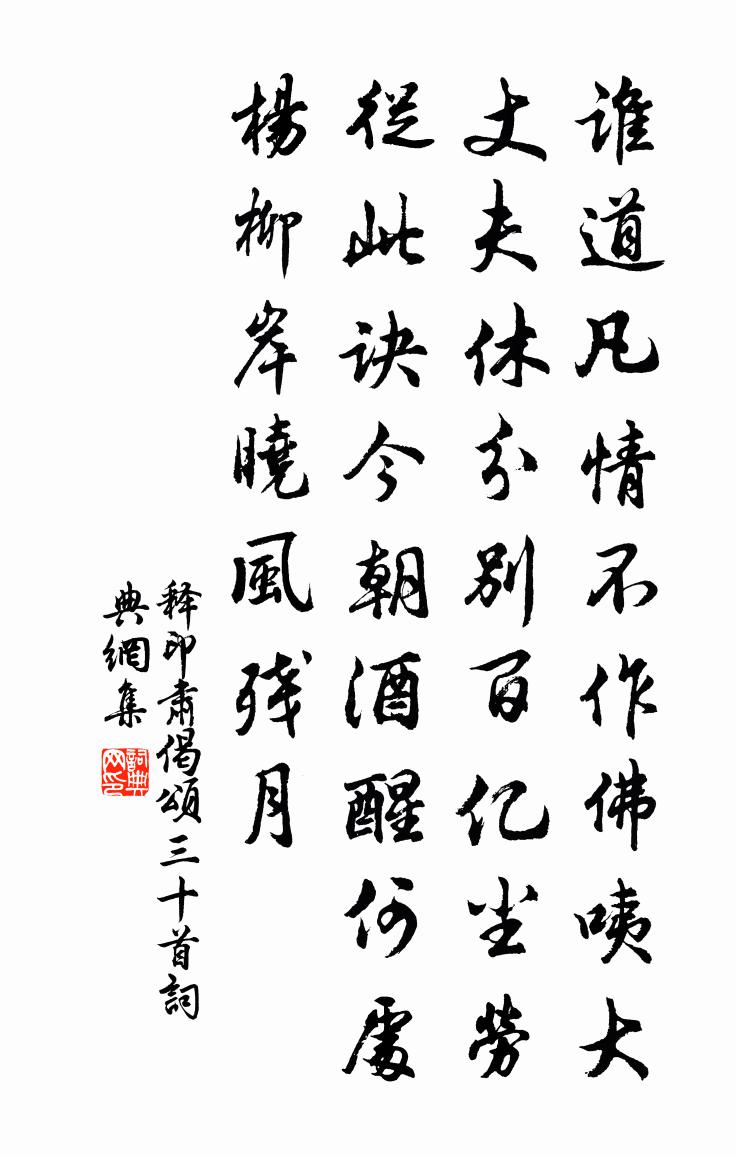 谁道凡情不作佛咦大
丈夫休分别百亿尘劳
從此诀今朝酒醒何處
楊柳岸曉風残月
释印肃偈颂三十首詞
典網集
詞典网印